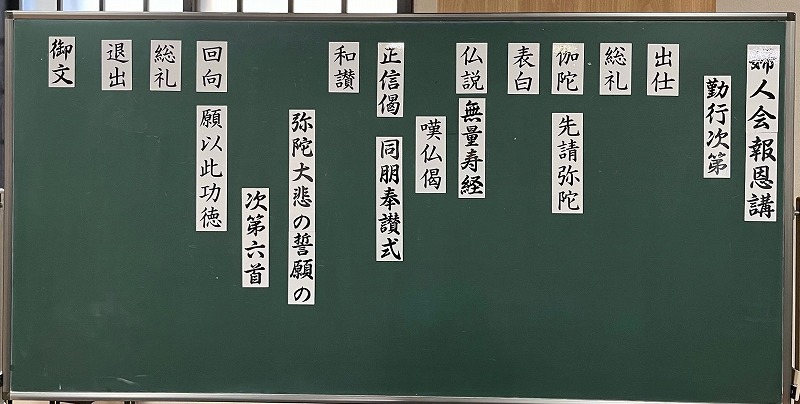 婦人会報恩講
勤行次第
出仕
総礼
伽陀 先請弥陀
表白
仏説無量寿経
嘆仏偈
正信偈 同朋奉讃式
和讃
弥陀大悲の誓願の
次第六首
回向 願以此功徳
総礼
退出
御文